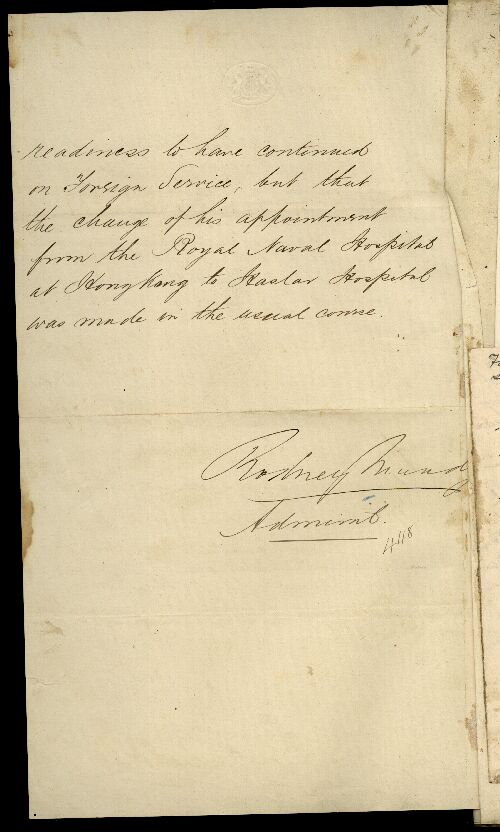 readiness to have continued
on Foreign Service, but that
the change of his appointment
from the Royal Naval Hospital
at Hong Kong to Haslar Hospital
was made in the usual course.
Rodney Mundy
Admiral.
448